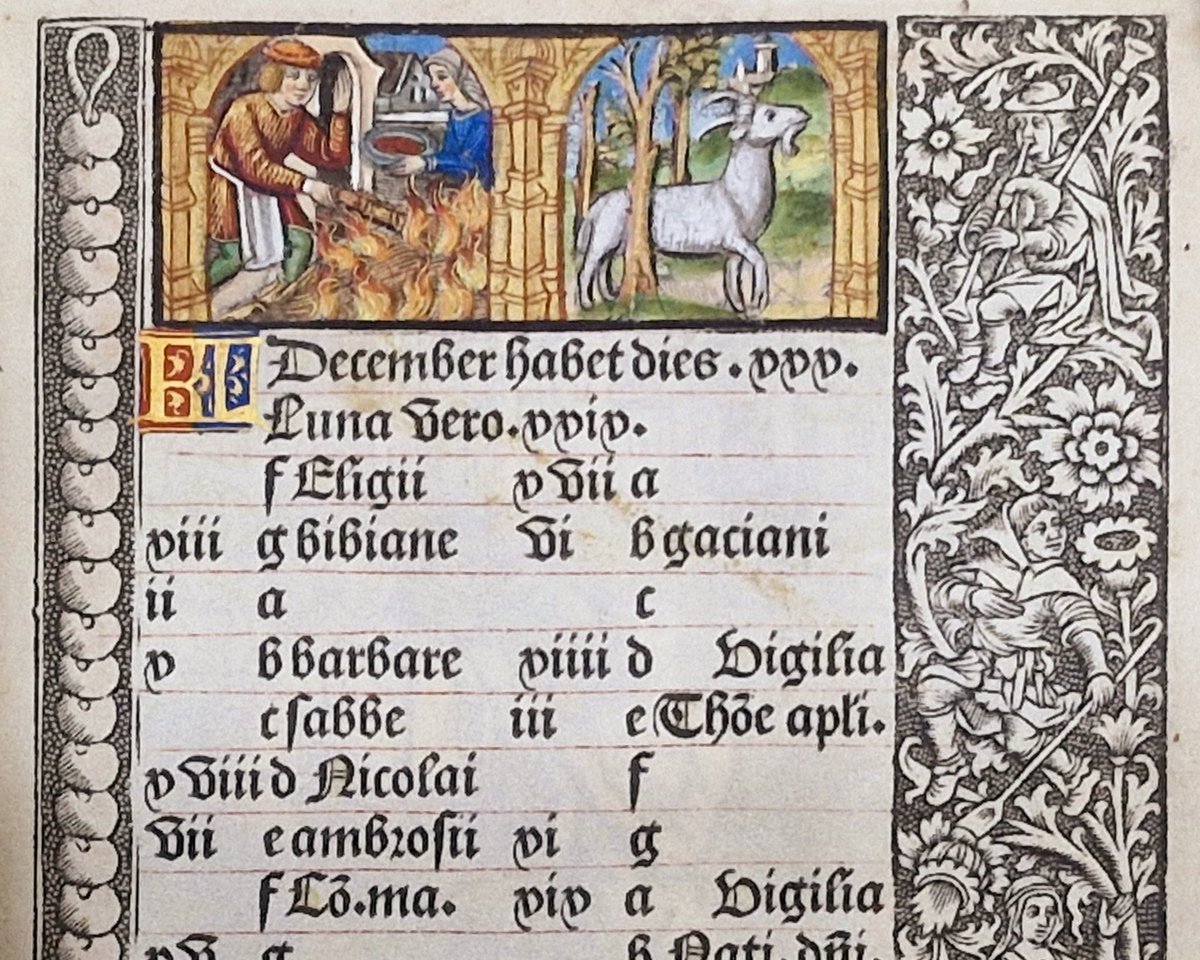 KL December habet dies . xxx.
Luna vero. xxix.
f Eligii xvii a
xiii g bibiane vi b gaciani
ii a c
x b barbare xiiii d Vigilia
c sabbe iii e Thōe apłi.
xviii d Nicolai f
vii e ambrosii xi g
f Cō.ma. xix a Vigilia
xv g b Nati. dñi.